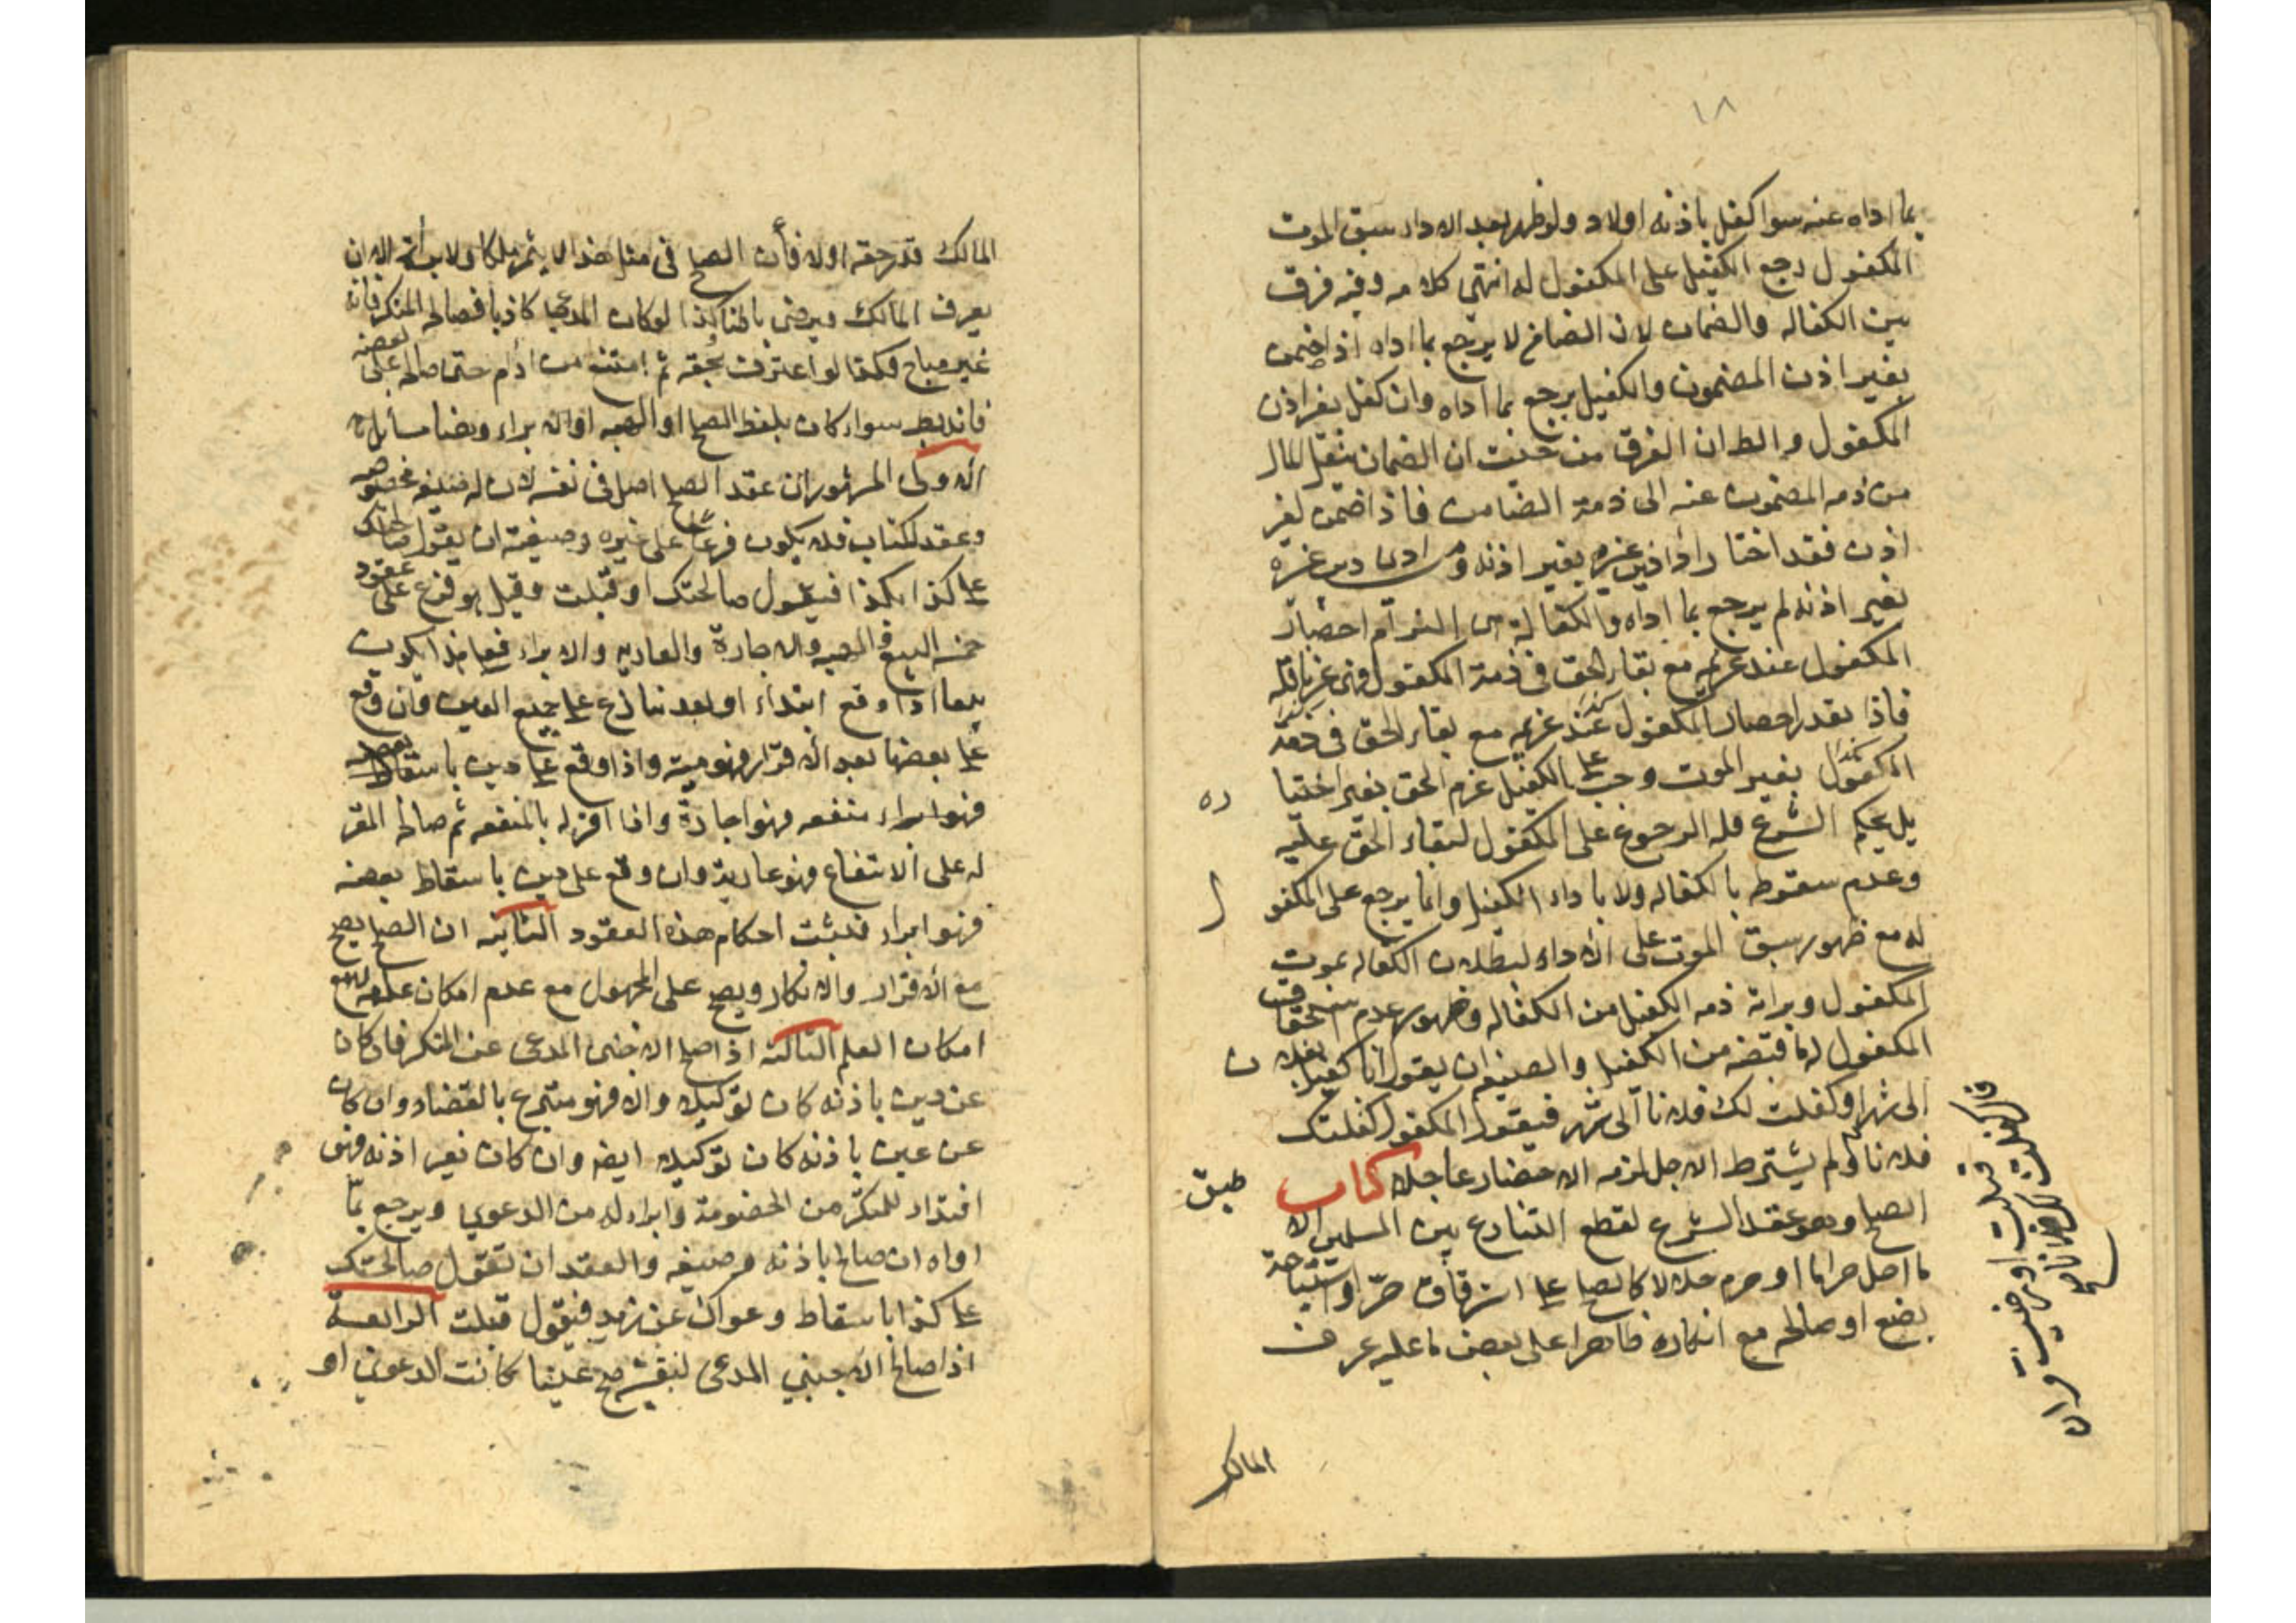 ١٨
بما اداه عنه سوا كفل باذنه اولا ولو ظهر بعد الادا سبق الموت
المكفول رجع الكفيل على المكفول له انتهى كلامه وفيه فرق
بين الكفاله والضمان لان الضامن لا يرجع بما اداه اذا ضمن
بغير اذن المضمون والكفيل يرجع بما اداه وان كفل بغير اذن
المكفول والط ان الفرق من حيث ان الضمان ينقل المال
من ذمه المضمون عنه الى ذمة الضامن فاذا ضمن لغير
اذن فقد اختار اداء دين غيره بغير اذنه ومن ادى دين غيره
بغير اذنه لم يرجع بما اداه والكفالة هى التزام احضار
المكفول عند غريمه مع بقاء الحق فى ذمة المكفول فهى غير ناقله
فاذا تعذر احضار المكفول عند غريمه مع بقاء الحق فى ذمة
المكفول بغير الموت وجب على الكفيل غرم الحق بغير اختيا
ره
بل بحكم الشرع فله الرجوع على المكفول لبقاء الحق عليه
وعدم سقوطه بالكفاله ولا باداء الكفيل وانما يرجع على المكفو
ل
له مع ظهور سبق الموت على الاداء لبطلان الكفاله بموت
المكفول وبراة ذمه الكفيل من الكفاله وظهور عدم استحقاق
المكفول له ما قبضه من الكفيل والصيغه ان يقول انا كفيل بفلا
ن
الى شهر او كفلت لك فلانا الى شهر فيقول المكفول كفلتك
فلانا ولم يشترط الاجل لزمه الاحضار عاجلا كتاب
الصلح وهو عقد الشرع لقطع التنازع بين المسلمين الا
ما احل حراما او حرم حلالا كالصلح على استرقاق حر او استباحة
بضع او صالحه مع انكاره ظاهرا على بعض ما عليه عرف
المالك
المالك قدر حقه اولا فان الصلح فى مثل هذا لا يثمر ملكا ولا براة الا ان
يعرف المالك ويرضى باطنا وكذا لو كان المدعى كاذبا فصالحه المنكر فانه
غير مباح وكذا لو اعترف بحقه ثم امتنع من اداه حتى صالحه على بعضه
فانه بط سواء كان بلفظ الصلح او الهبه او الابراء وهنا مسائل
الاولى المشهور ان عقد الصلح اصل فى نفسه لان له صيغه مخصوصه
وعقد الكتاب فلا يكون فرعا على غيره وصيغته ان يقول صالحتك
على كذا بكذا فيقول صالحتك او قبلت وقيل هو فرع على عقود
خمسه البيع والهبه والاجارة والعاريه والابراء فعلى هذا يكون
بيعا اذا وقع ابتداء او بعد تنازع على جميع العين وان وقع
على بعضها بعد الاقرار فهو هبة واذا وقع على دين باسقاط بعضه
فهو ابراء منفعه فهو اجارة واذا اقر له بالمنفعه ثم صالحه المقر
له على الانتفاع فهو عارية وان وقع على دين باسقاط بعضه
فهو ابراء فيثبت احكام هذه العقود الثانيه ان الصلح يصح
مع الاقرار والانكار ويصح على المجهول مع عدم امكان علمه لا مع
امكان العلم الثالثة اذا صلح الاجنبى المدعى عن المنكر فان كان
عن دين باذنه كان توكيلا والا فهو متبرع بالقضاء وان كان
عن عين باذنه كان توكيلا ايضا وان كان بغير اذنه فهو
افتداء للمنكر من الخصومة وابراء له من الدعوى ويرجع بما
اداه ان صالح باذنه وصيغه والعقد ان تقول صالحتك
على كذا باسقاط دعواك عن زيد فيقول قبلت الرابعة
اذا صالح الاجنبي المدعى لنفسه صح عينا كانت الدعوى او